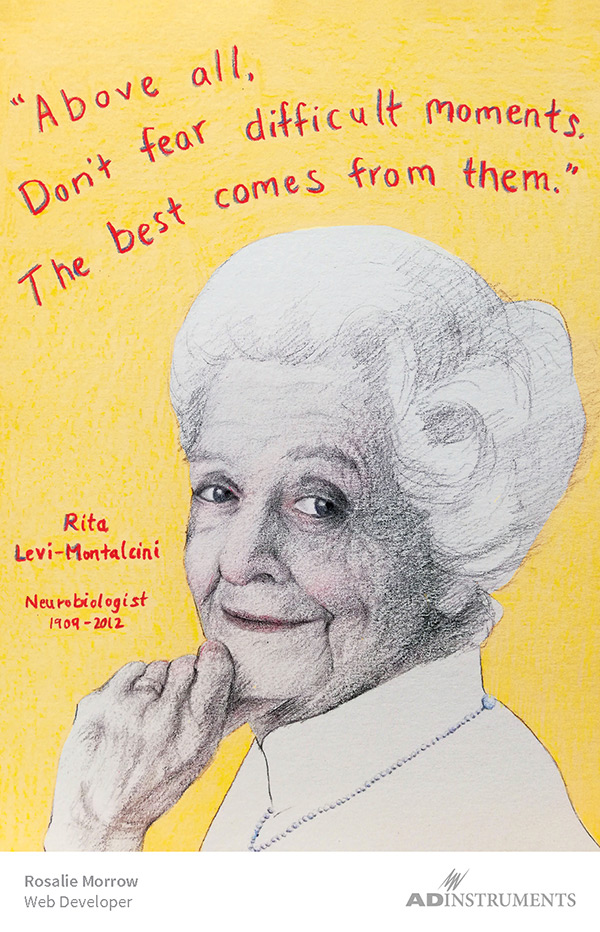 “Above all,
Don't fear difficult moments.
The best comes from them.”
Rita
Levi-Montalcini
Neurobiologist
1909-2012
Rosalie Morrow
Web Developer
ADINSTRUMENTS